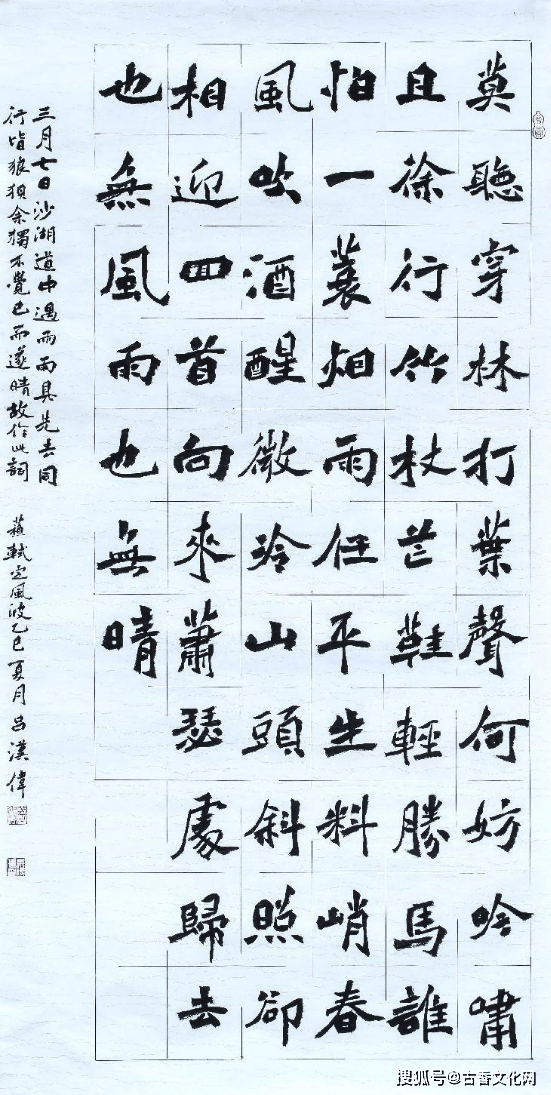 莫聽穿林打葉聲何妨吟嘯
且徐行竹杖芒鞋輕勝馬誰
怕一蓑烟雨任平生料峭春
風吹酒醒微冷山頭斜照卻
相迎回首向來蕭瑟處歸去
也無風雨也無晴
三月七日沙湖道中遇雨雨具先去同
行皆狼狽余獨不覺已而遂晴故作此詞 蘇軾定風波乙巳夏月呂漢偉
搜狐号@古香文化网